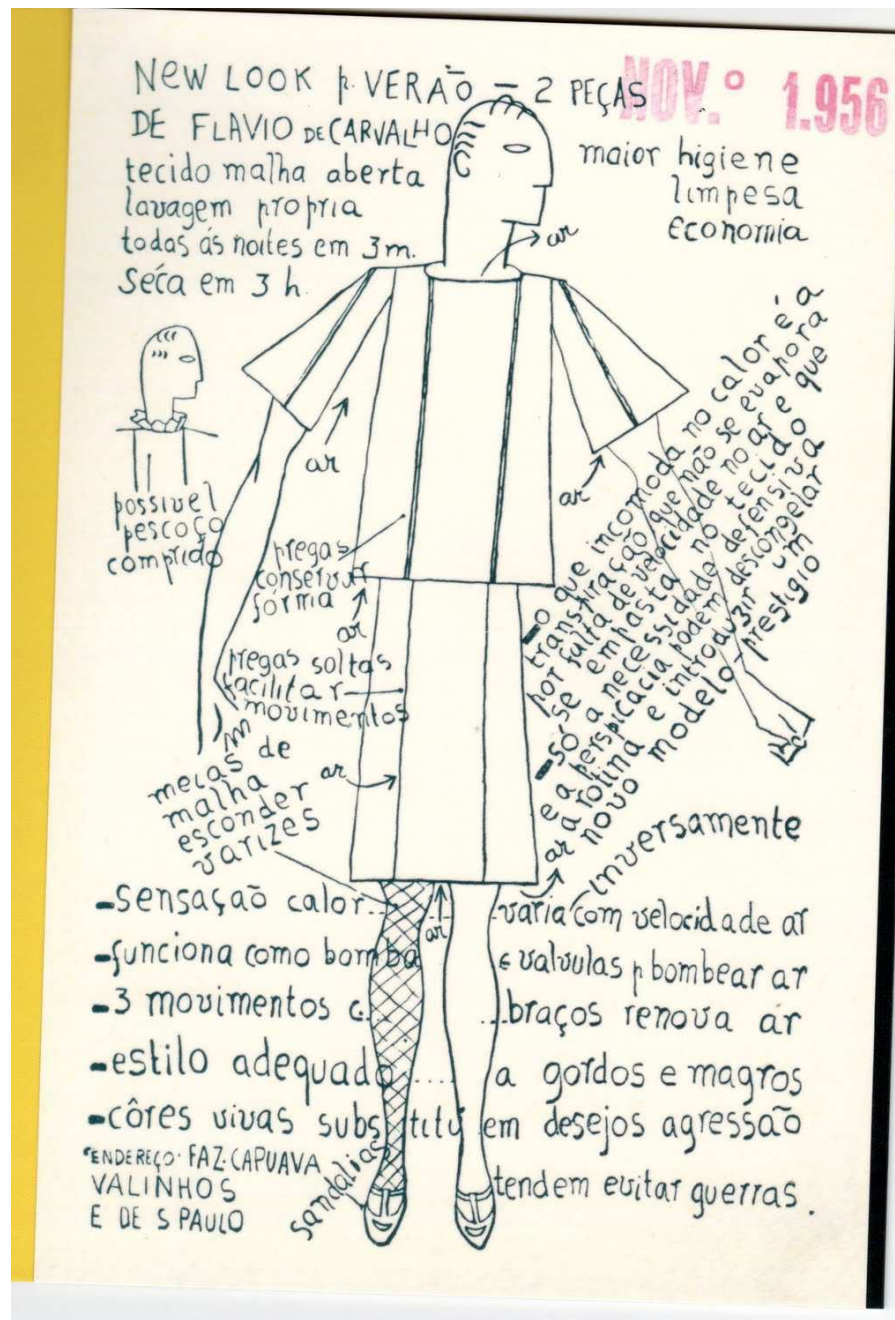 NEW LOOK p. VERÃO – 2 PEÇAS
DE FLAVIO DE CARVALHO
NOV.º 1.956
tecido malha aberta
lavagem propria
todas ás noites em 3m.
Séca em 3 h.
maior higiene
limpesa
Economia
ar
possivel
pescoço
comprido
ar
ar
pregas
conservar
fórma
ar
pregas soltas
facilitar
movimentos
ar
meias de
malha
esconder
varizes
-o que incomoda no calor é a
transpiração que não se evapora
por falta de velocidade no ar e que
se empasta no tecido
-só a necessidade defensiva
e a perspicacia podem descongelar
a rotina e introduzir um
novo modelo-prestigio
ar
ar
inversamente
-sensação calor... ...varia com velocidade ar
-funciona como bomba e valvulas p bombear ar
-3 movimentos c. ...braços renova ár
-estilo adequado .... a gordos e magros
-côres vivas substituem desejos agressão
tendem evitar guerras.
ENDEREÇO· FAZ·CAPUAVA
VALINHOS
E DE S PAULO
sandalias